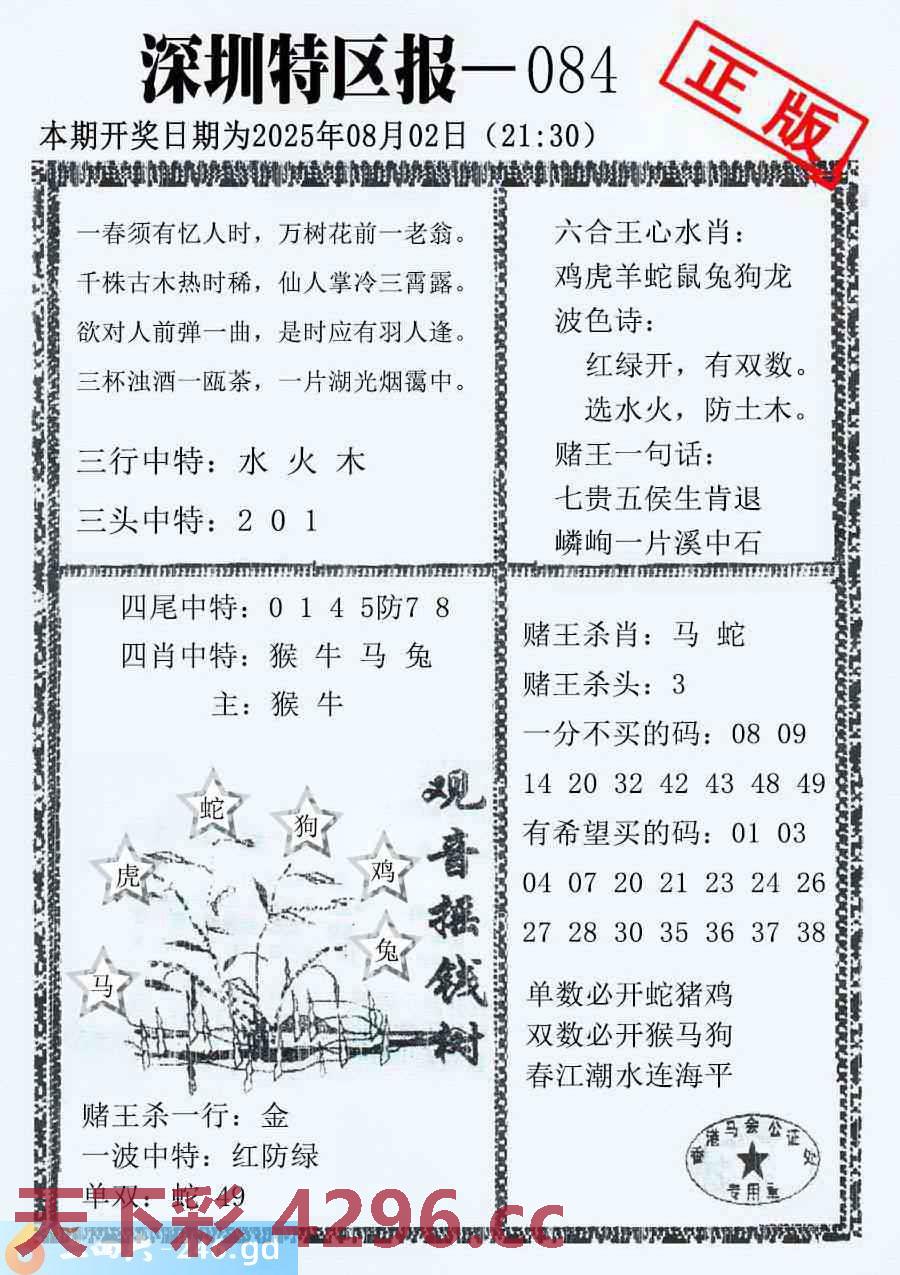 深圳特区报—084
正版
本期开奖日期为2025年08月02日（21:30）
一春须有忆人时，万树花前一老翁。
千株古木热时稀，仙人掌冷三霄露。
欲对人前弹一曲，是时应有羽人逢。
三杯浊酒一瓯茶，一片湖光烟霭中。
三行中特：水 火 木
三头中特：2 0 1
六合王心水肖：
鸡虎羊蛇鼠兔狗龙
波色诗：
红绿开，有双数。
选水火，防土木。
赌王一句话：
七贵五侯生肯退
嶙峋一片溪中石
四尾中特：0 1 4 5防7 8
四肖中特：猴 牛 马 兔
主：猴 牛
观音摇钱树
蛇
狗
虎
鸡
兔
马
赌王杀一行：金
一波中特：红防绿
单双：蛇 49
赌王杀肖：马 蛇
赌王杀头：3
一分不买的码：08 09
14 20 32 42 43 48 49
有希望买的码：01 03
04 07 20 21 23 24 26
27 28 30 35 36 37 38
单数必开蛇猪鸡
双数必开猴马狗
春江潮水连海平
香港马会公证处
专用章
天下彩 4296.cc